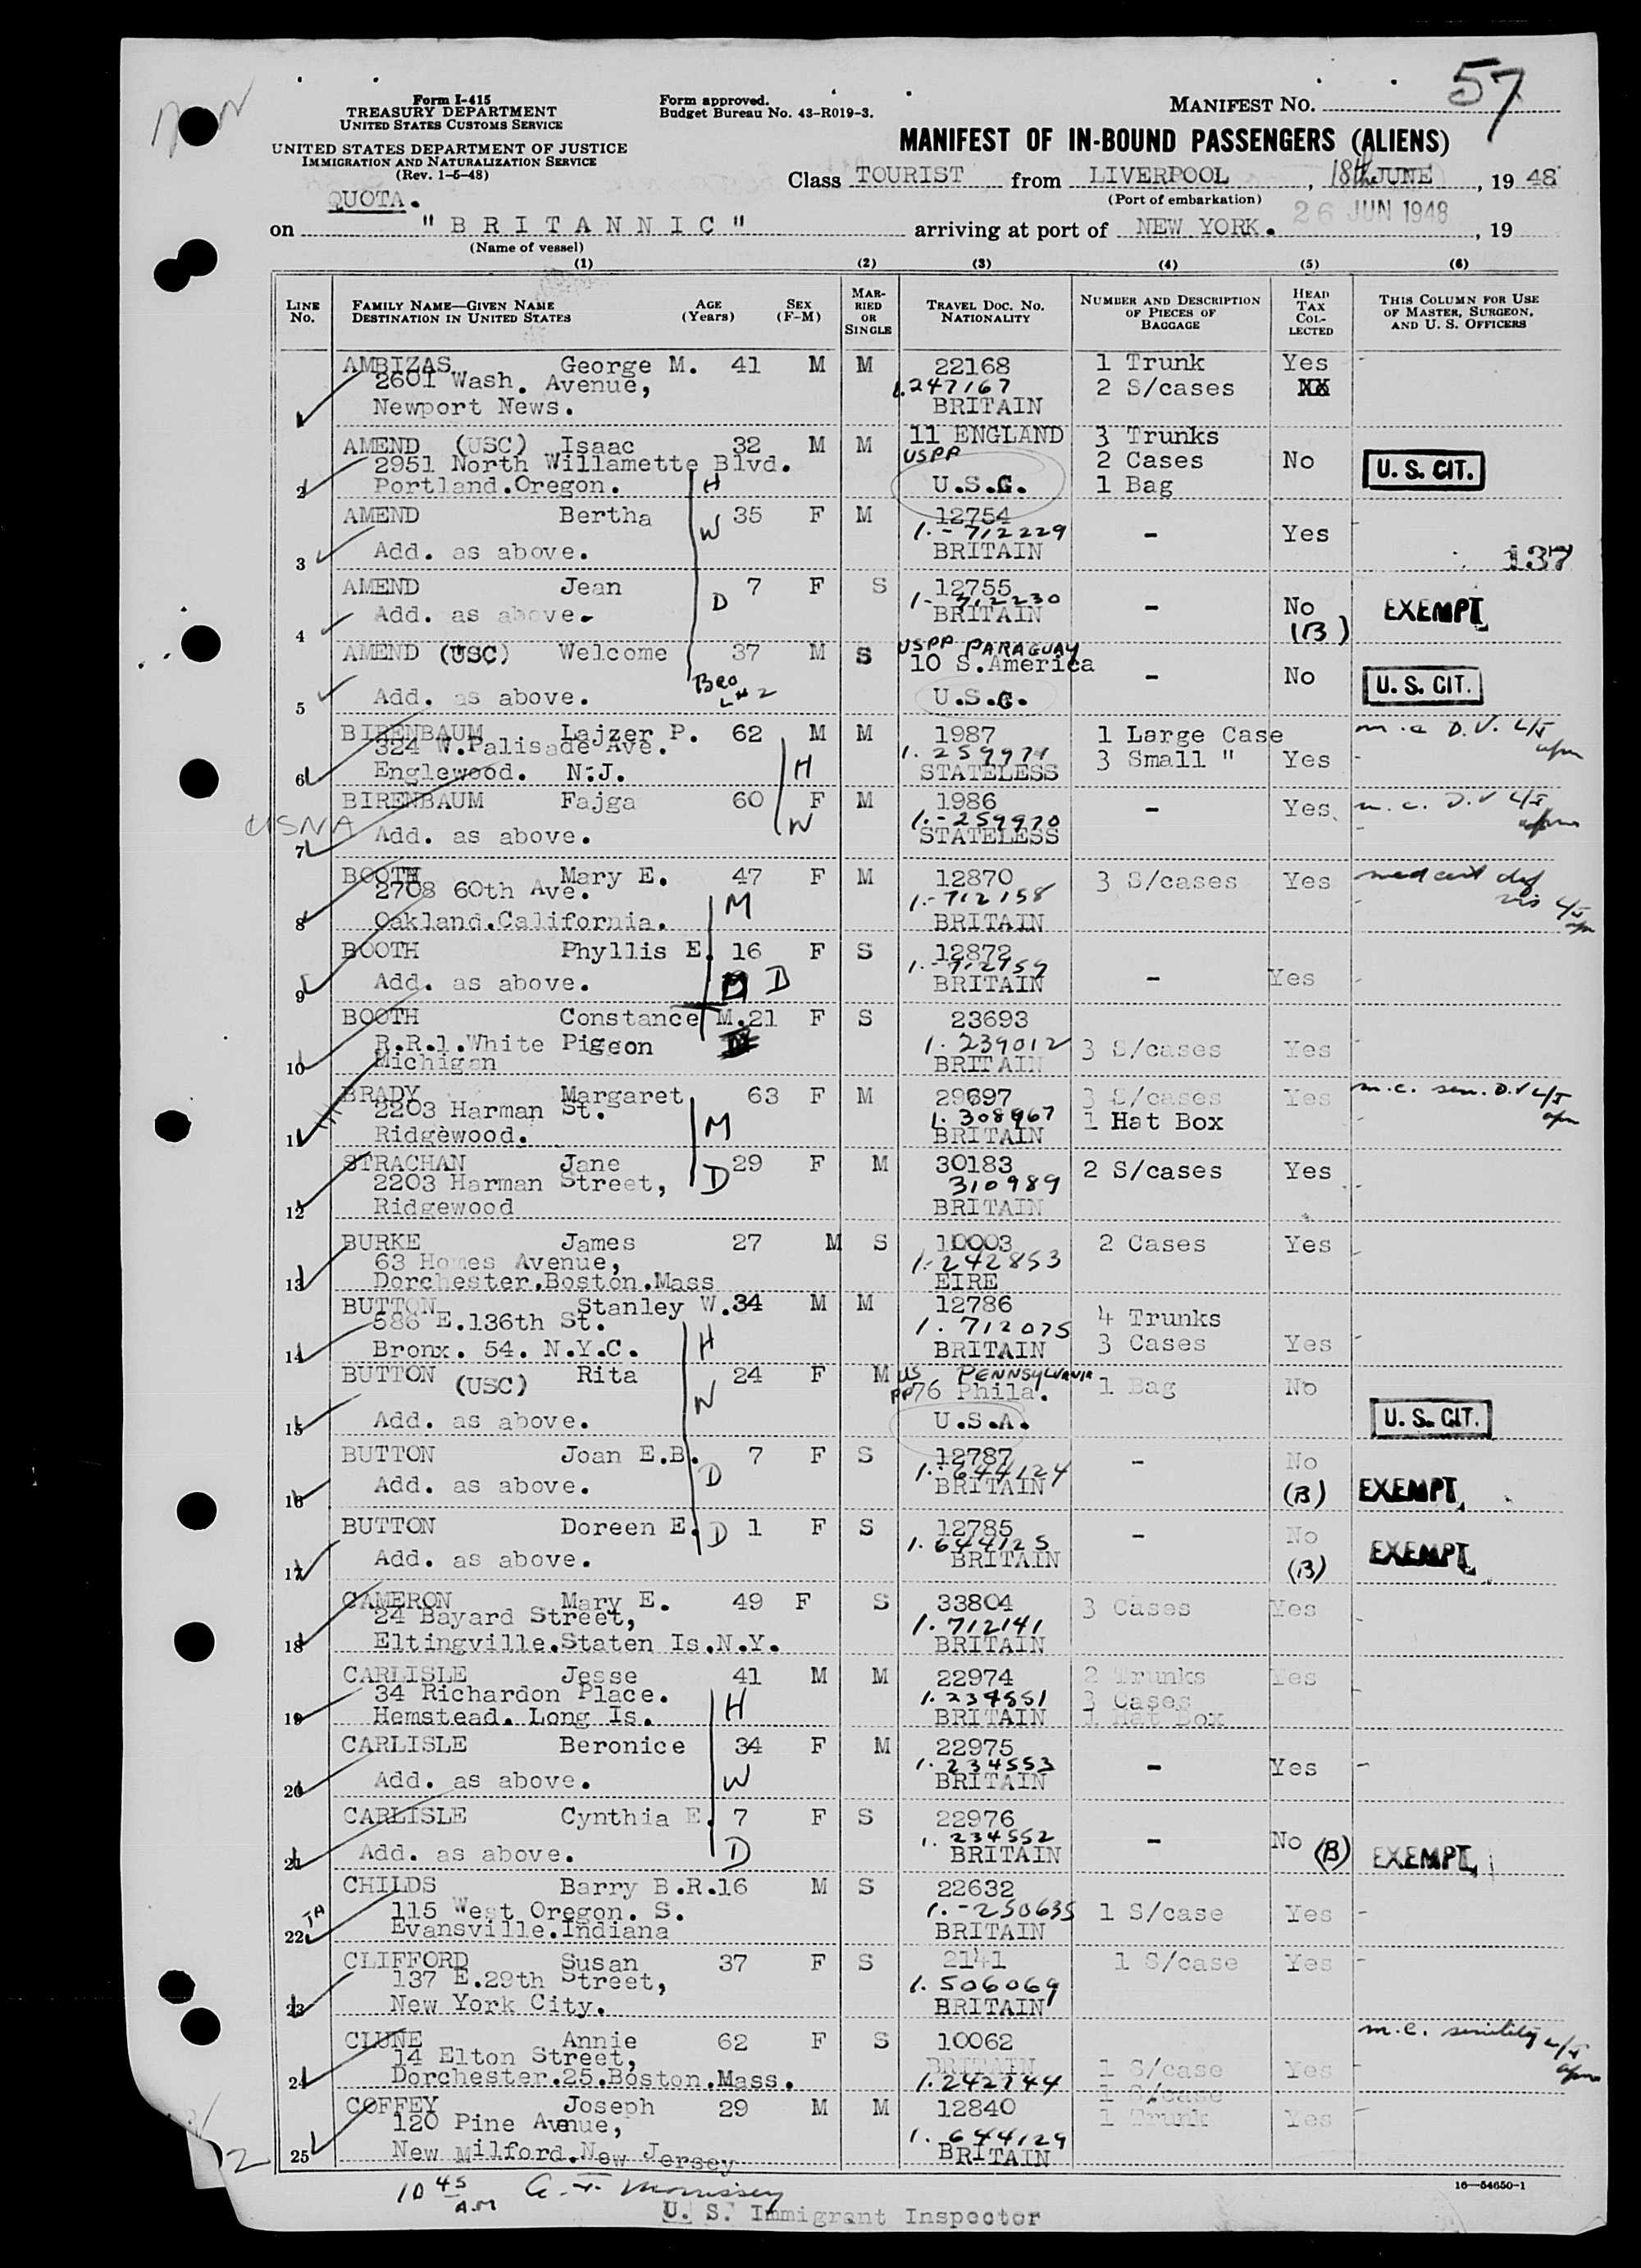 57
Form I-415
TREASURY DEPARTMENT
UNITED STATES CUSTOMS SERVICE
UNITED STATES DEPARTMENT OF JUSTICE
IMMIGRATION AND NATURALIZATION SERVICE
(Rev. 1-5-48)
Form approved.
Budget Bureau No. 43-R019-3.
MANIFEST NO.
MANIFEST OF IN-BOUND PASSENGERS (ALIENS)
Class TOURIST from LIVERPOOL, 18th JUNE, 19 48
(Port of embarkation)
QUOTA.
on "BRITANNIC" arriving at port of NEW YORK. 26 JUN 1948, 19
(Name of vessel)
(1) (2) (3) (4) (5) (6)
LINE No. FAMILY NAME—GIVEN NAME DESTINATION IN UNITED STATES AGE (Years) SEX (F-M) MARRIED OR SINGLE TRAVEL DOC. NO. NATIONALITY NUMBER AND DESCRIPTION OF PIECES OF BAGGAGE HEAD TAX COLLECTED THIS COLUMN FOR USE OF MASTER, SURGEON, AND U. S. OFFICERS
AMBIZAS George M. 41 M M 22168 1 Trunk Yes
2601 Wash. Avenue, 1.247167 2 S/cases XX
Newport News. BRITAIN
AMEND (USC) Isaac 32 M M 11 ENGLAND 3 Trunks
2951 North Willamette Blvd. USPP 2 Cases No U. S. CIT.
2 Portland.Oregon. H U.S.C. 1 Bag
AMEND Bertha 35 F M 12754
W 1.-712229 - Yes
3 Add. as above. BRITAIN 137
AMEND Jean 7 F S 12755
D 1-712230 - No EXEMPT
4 Add. as above. BRITAIN (B)
AMEND (USC) Welcome 37 M S USPP PARAGUAY
10 S.America - No U. S. CIT.
5 Add. as above. Bro L#2 U.S.C.
BIRENBAUM Lajzer P. 62 M M 1987 1 Large Case m.c D.V. L/I
324 W.Palisade Ave. 1.259971 3 Small " Yes
6 Englewood. N.J. H STATELESS
BIRENBAUM Fajga 60 F M 1986 - Yes m.c. D.V L/I
USNA 1.-259970
7 Add. as above. W STATELESS
BOOTH Mary E. 47 F M 12870 3 S/cases Yes med cert def
2708 60th Ave. M 1.-712158 vis L/I
8 Oakland.California. BRITAIN
BOOTH Phyllis E. 16 F S 12872
1.-712159
9 Add. as above. D BRITAIN - Yes
BOOTH Constance M. 21 F S 23693
R.R.1.White Pigeon 1.239012 3 S/cases Yes
10 Michigan BRITAIN
BRADY Margaret 63 F M 29697 3 S/cases Yes m.c. sen. D.V L/I
2203 Harman St. 1.308967 1 Hat Box
11 Ridgewood. M BRITAIN
STRACHAN Jane 29 F M 30183 2 S/cases Yes
2203 Harman Street, D 310989
12 Ridgewood BRITAIN
BURKE James 27 M S 10003 2 Cases Yes
63 Homes Avenue, 1.-242853
13 Dorchester.Boston.Mass EIRE
BUTTON Stanley W. 34 M M 12786 4 Trunks
586 E.136th St. 1.712075
14 Bronx. 54. N.Y.C. H BRITAIN 3 Cases Yes
BUTTON (USC) Rita 24 F M US PENNSYLVANIA
W PP76 Phila. 1 Bag No
15 Add. as above. U.S.A. U. S. CIT.
BUTTON Joan E.B. 7 F S 12787 - No
D 1.644124
16 Add. as above. BRITAIN (B) EXEMPT
BUTTON Doreen E. D 1 F S 12785 - No
1.644125
17 Add. as above. BRITAIN (B) EXEMPT
CAMERON Mary E. 49 F S 33804 3 Cases Yes
24 Bayard Street, 1.712141
18 Eltingville.Staten Is.N.Y. BRITAIN
CARLISLE Jesse 41 M M 22974 2 Trunks Yes
34 Richardon Place. 1.234551 3 Cases
19 Hemstead. Long Is. H BRITAIN 1 Hat Box
CARLISLE Beronice 34 F M 22975
1.234553 - Yes
20 Add. as above. W BRITAIN
CARLISLE Cynthia E. 7 F S 22976
1.234552 - No
21 Add. as above. D BRITAIN (B) EXEMPT
CHILDS Barry B.R. 16 M S 22632
TA 115 West Oregon. S. 1.-250635 1 S/case Yes
22 Evansville.Indiana BRITAIN
CLIFFORD Susan 37 F S 2141 1 S/case Yes
137 E.29th Street, 1.506069
23 New York City. BRITAIN
CLUNE Annie 62 F S 10062 m.c. senility L/I
14 Elton Street, BRITAIN 1 S/case Yes
24 Dorchester.25.Boston.Mass. 1.242744
COFFEY Joseph 29 M M 12840 1 S/case
120 Pine Avenue, 1.644129 1 Trunk Yes
25 New Milford.New Jersey BRITAIN
10 45 A.M
U. S. Immigrant Inspector
16—54650-1